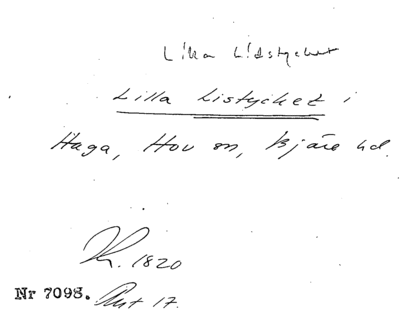 Lilla Lidstycket
Lilla Listycket i
Haga, Hov sn, Bjäre hd.
K. 1820
Nr 7098. Akt 17.